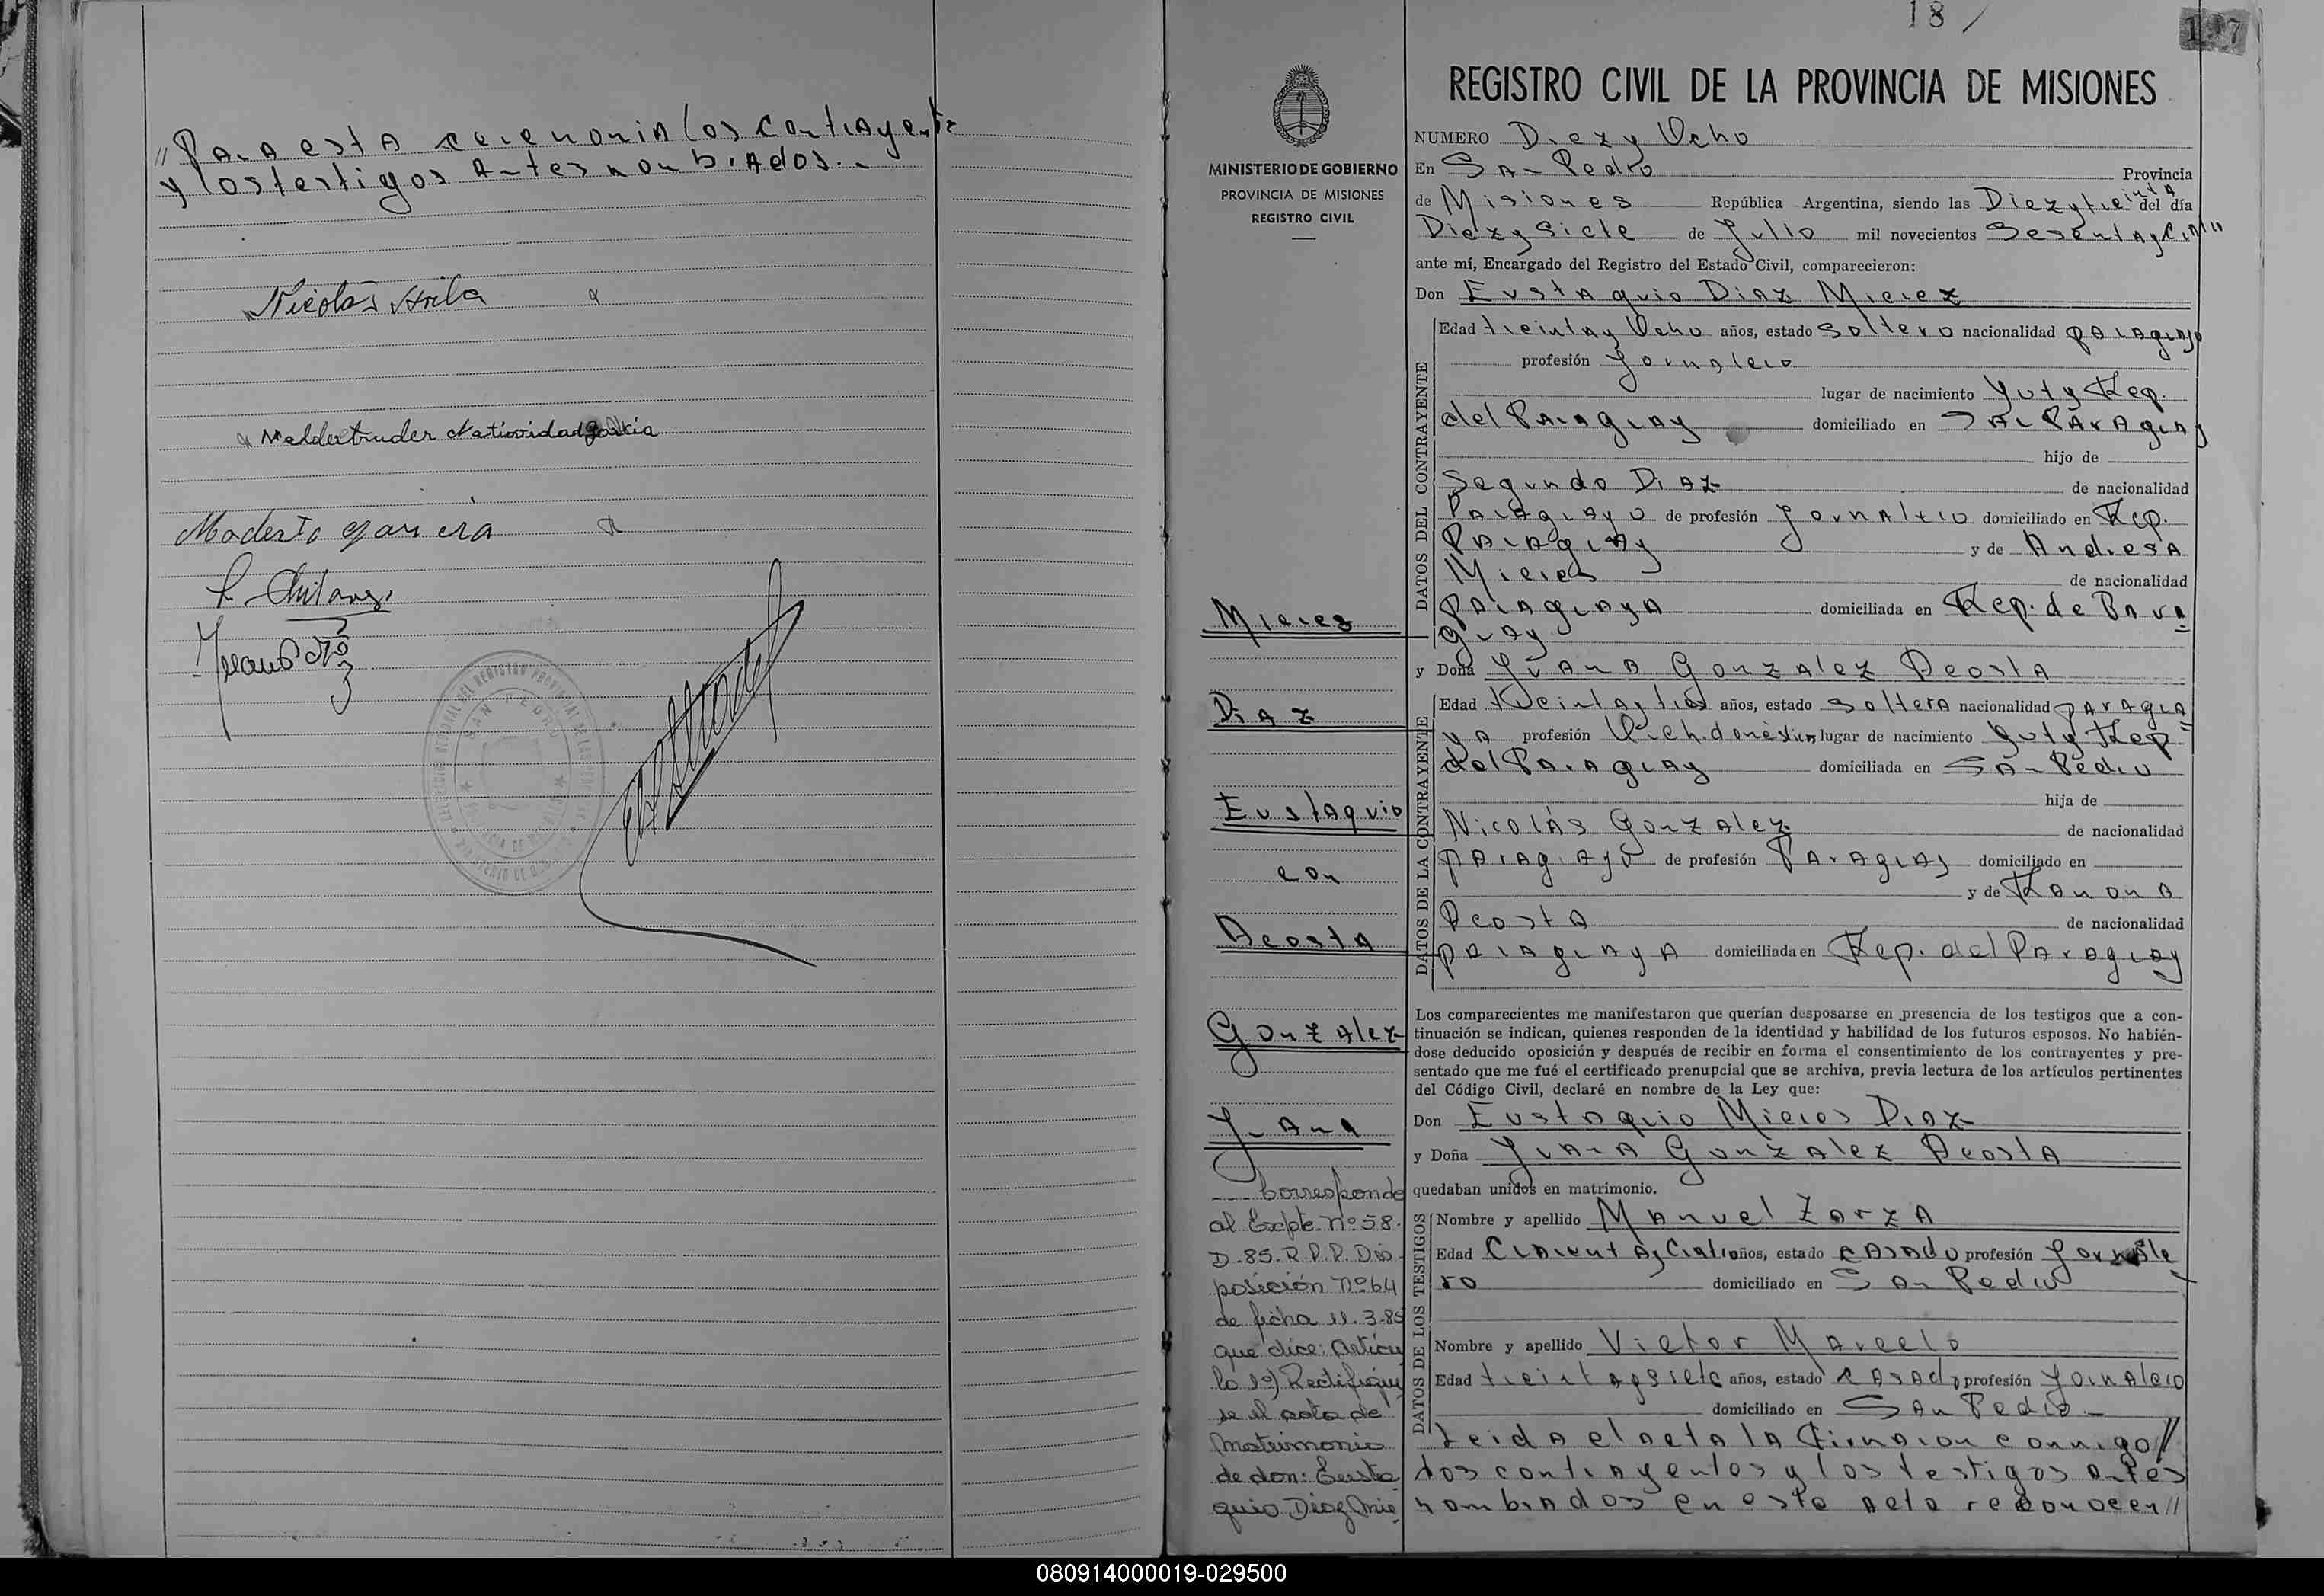 // Para esta ceremonia los contrayentes
y los testigos antes nombrados.-
Nicolás
Natividad Garcia
Modesto
18 /
197
REGISTRO CIVIL DE LA PROVINCIA DE MISIONES
MINISTERIO DE GOBIERNO
PROVINCIA DE MISIONES
REGISTRO CIVIL
NUMERO Diez y Ocho
En San Pedro Provincia
de Misiones República Argentina, siendo las Diez y treinta del día
Diez y Siete de Julio mil novecientos Sesenta y cinco
ante mí, Encargado del Registro del Estado Civil, comparecieron:
Don Eustaquio Diaz Mierez
DATOS DEL CONTRAYENTE
Edad treinta y Ocho años, estado Soltero nacionalidad paraguayo
profesión Jornalero
lugar de nacimiento Yuty Rep.
del Paraguay domiciliado en Paraguay
hijo de
Segundo Diaz de nacionalidad
Paraguayo de profesión Jornalero domiciliado en Rep.
Paraguay y de Andresa
Mieres de nacionalidad
paraguaya domiciliada en Rep. de Para
guay
y Doña Juana Gonzalez Acosta
DATOS DE LA CONTRAYENTE
Edad treinta y tres años, estado Soltera nacionalidad paragua
ya profesión lugar de nacimiento Yuty Rep
del Paraguay domiciliada en San Pedro
hija de
Nicolás Gonzalez de nacionalidad
paraguayo de profesión Paraguay domiciliado en
y de Ramona
Acosta de nacionalidad
paraguaya domiciliada en Rep. del Paraguay
Mieres
Diaz
Eustaquio
con
Acosta
Gonzalez
Juana
Los comparecientes me manifestaron que querían desposarse en presencia de los testigos que a con-
tinuación se indican, quienes responden de la identidad y habilidad de los futuros esposos. No habién-
dose deducido oposición y después de recibir en forma el consentimiento de los contrayentes y pre-
sentado que me fué el certificado prenupcial que se archiva, previa lectura de los artículos pertinentes
del Código Civil, declaré en nombre de la Ley que:
Don Eustaquio Mieres Diaz
y Doña Juana Gonzalez Acosta
quedaban unidos en matrimonio.
DATOS DE LOS TESTIGOS
Nombre y apellido Manuel Zarza
Edad años, estado casado profesión Jornale
ro domiciliado en San Pedro
Nombre y apellido Victor Marcelo
Edad treinta y siete años, estado casado profesión Jornalero
domiciliado en San Pedro -
Leida el acta la conmigo //
los contrayentes y los testigos antes
nombrados en esta acta reconocen //
Corresponde
al Expte. nº 58.
D-85. R.P.P. Dis-
posición nº 64
de fecha 11.3.85
que dice: Artícu
lo 1º) Rectifíque
se el acta de
Matrimonio
de don: Eusta
quio Diaz Mie
080914000019-029500